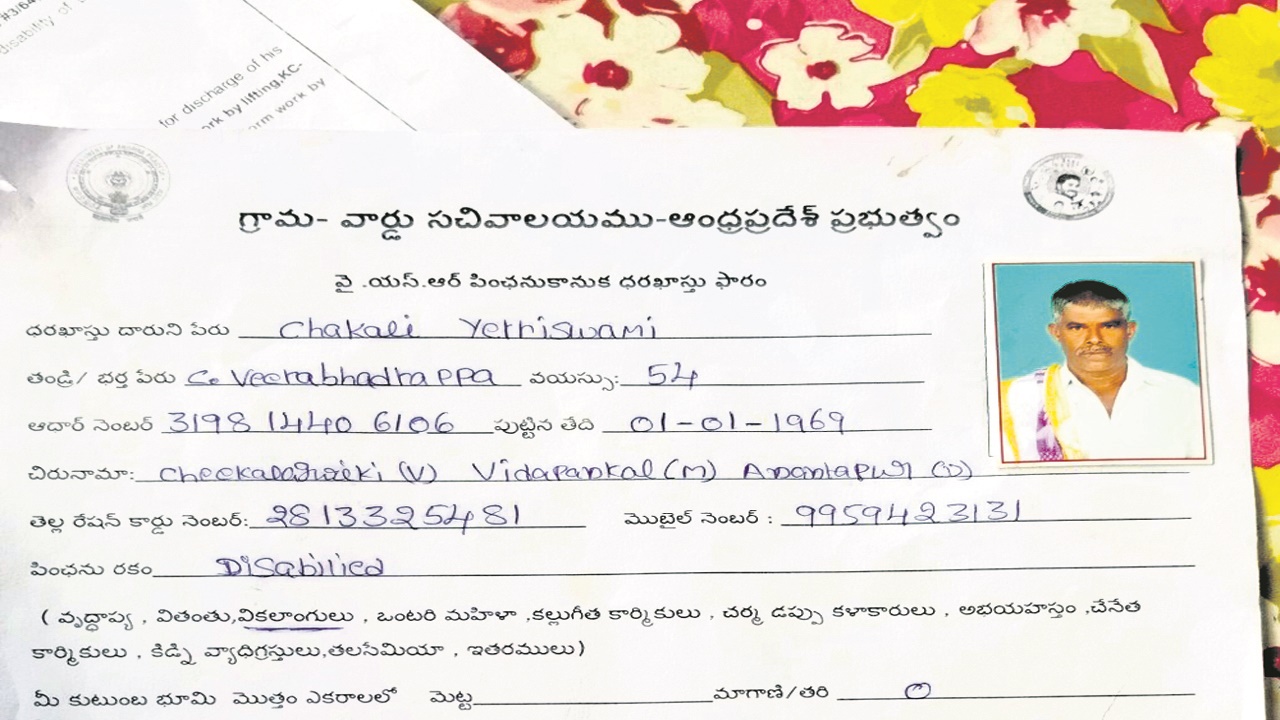 #3/64
disability of
for discharge of his
ork by lifting,KC-
orm work by
గ్రామ- వార్డు సచివాలయము-ఆంధ్రప్రదేశ్ ప్రభుత్వం
వై .యస్.ఆర్ పింఛనుకానుక ధరఖాస్తు ఫారం
ధరఖాస్తు దారుని పేరు Chakali Yerriswami
తండ్రి/ భర్త పేరు C. Veerabhadrappa వయస్సు: 54
ఆధార్ నెంబర్ 3198 1440 6106 పుట్టిన తేది 01-01-1969
చిరునామా: (V) Vidapankal (M) Anantapur (D)
తెల్ల రేషన్ కార్డు నెంబర్: 2813325481 మొబైల్ నెంబర్ : 9959423131
పింఛను రకం Disabilied
( వృద్ధాప్య , వితంతు,వికలాంగులు , ఒంటరి మహిళా ,కల్లుగీత కార్మికులు , చర్మ డప్పు కళాకారులు , అభయహస్తం ,చేనేత
కార్మికులు , కిడ్ని వ్యాధిగ్రస్తులు,తలసేమియా , ఇతరములు)
మీ కుటుంబ భూమి మొత్తం ఎకరాలలో మెట్ట మాగాణి/తరి 0